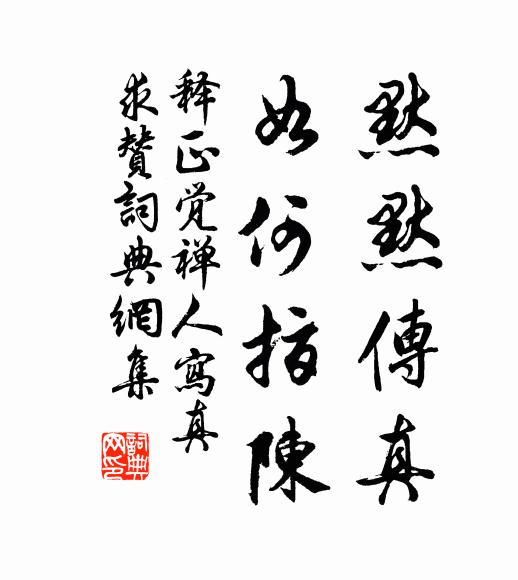 默默傳真
如何指陳
释正觉禅人寫真
求贊詞典網集
詞典网印